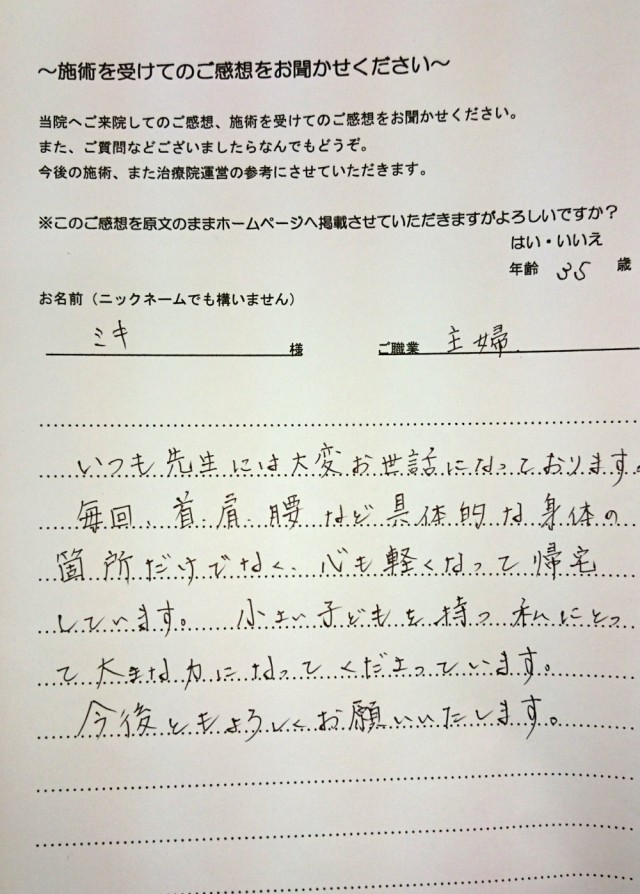 ～施術を受けてのご感想をお聞かせください～
当院へご来院してのご感想、施術を受けてのご感想をお聞かせください。
また、ご質問などございましたらなんでもどうぞ。
今後の施術、また治療院運営の参考にさせていただきます。
※このご感想を原文のままホームページへ掲載させていただきますがよろしいですか？
はい・いいえ
年齢 35 歳
お名前（ニックネームでも構いません）
ミキ 様 ご職業 主婦
いつも先生には大変お世話になっております。
毎回、首、肩、腰など具体的な身体の
箇所だけでなく、心も軽くなって帰宅
しています。 小さい子どもを持つ私にとっ
て大きな力になってくださっています。
今後ともよろしくお願いいたします。